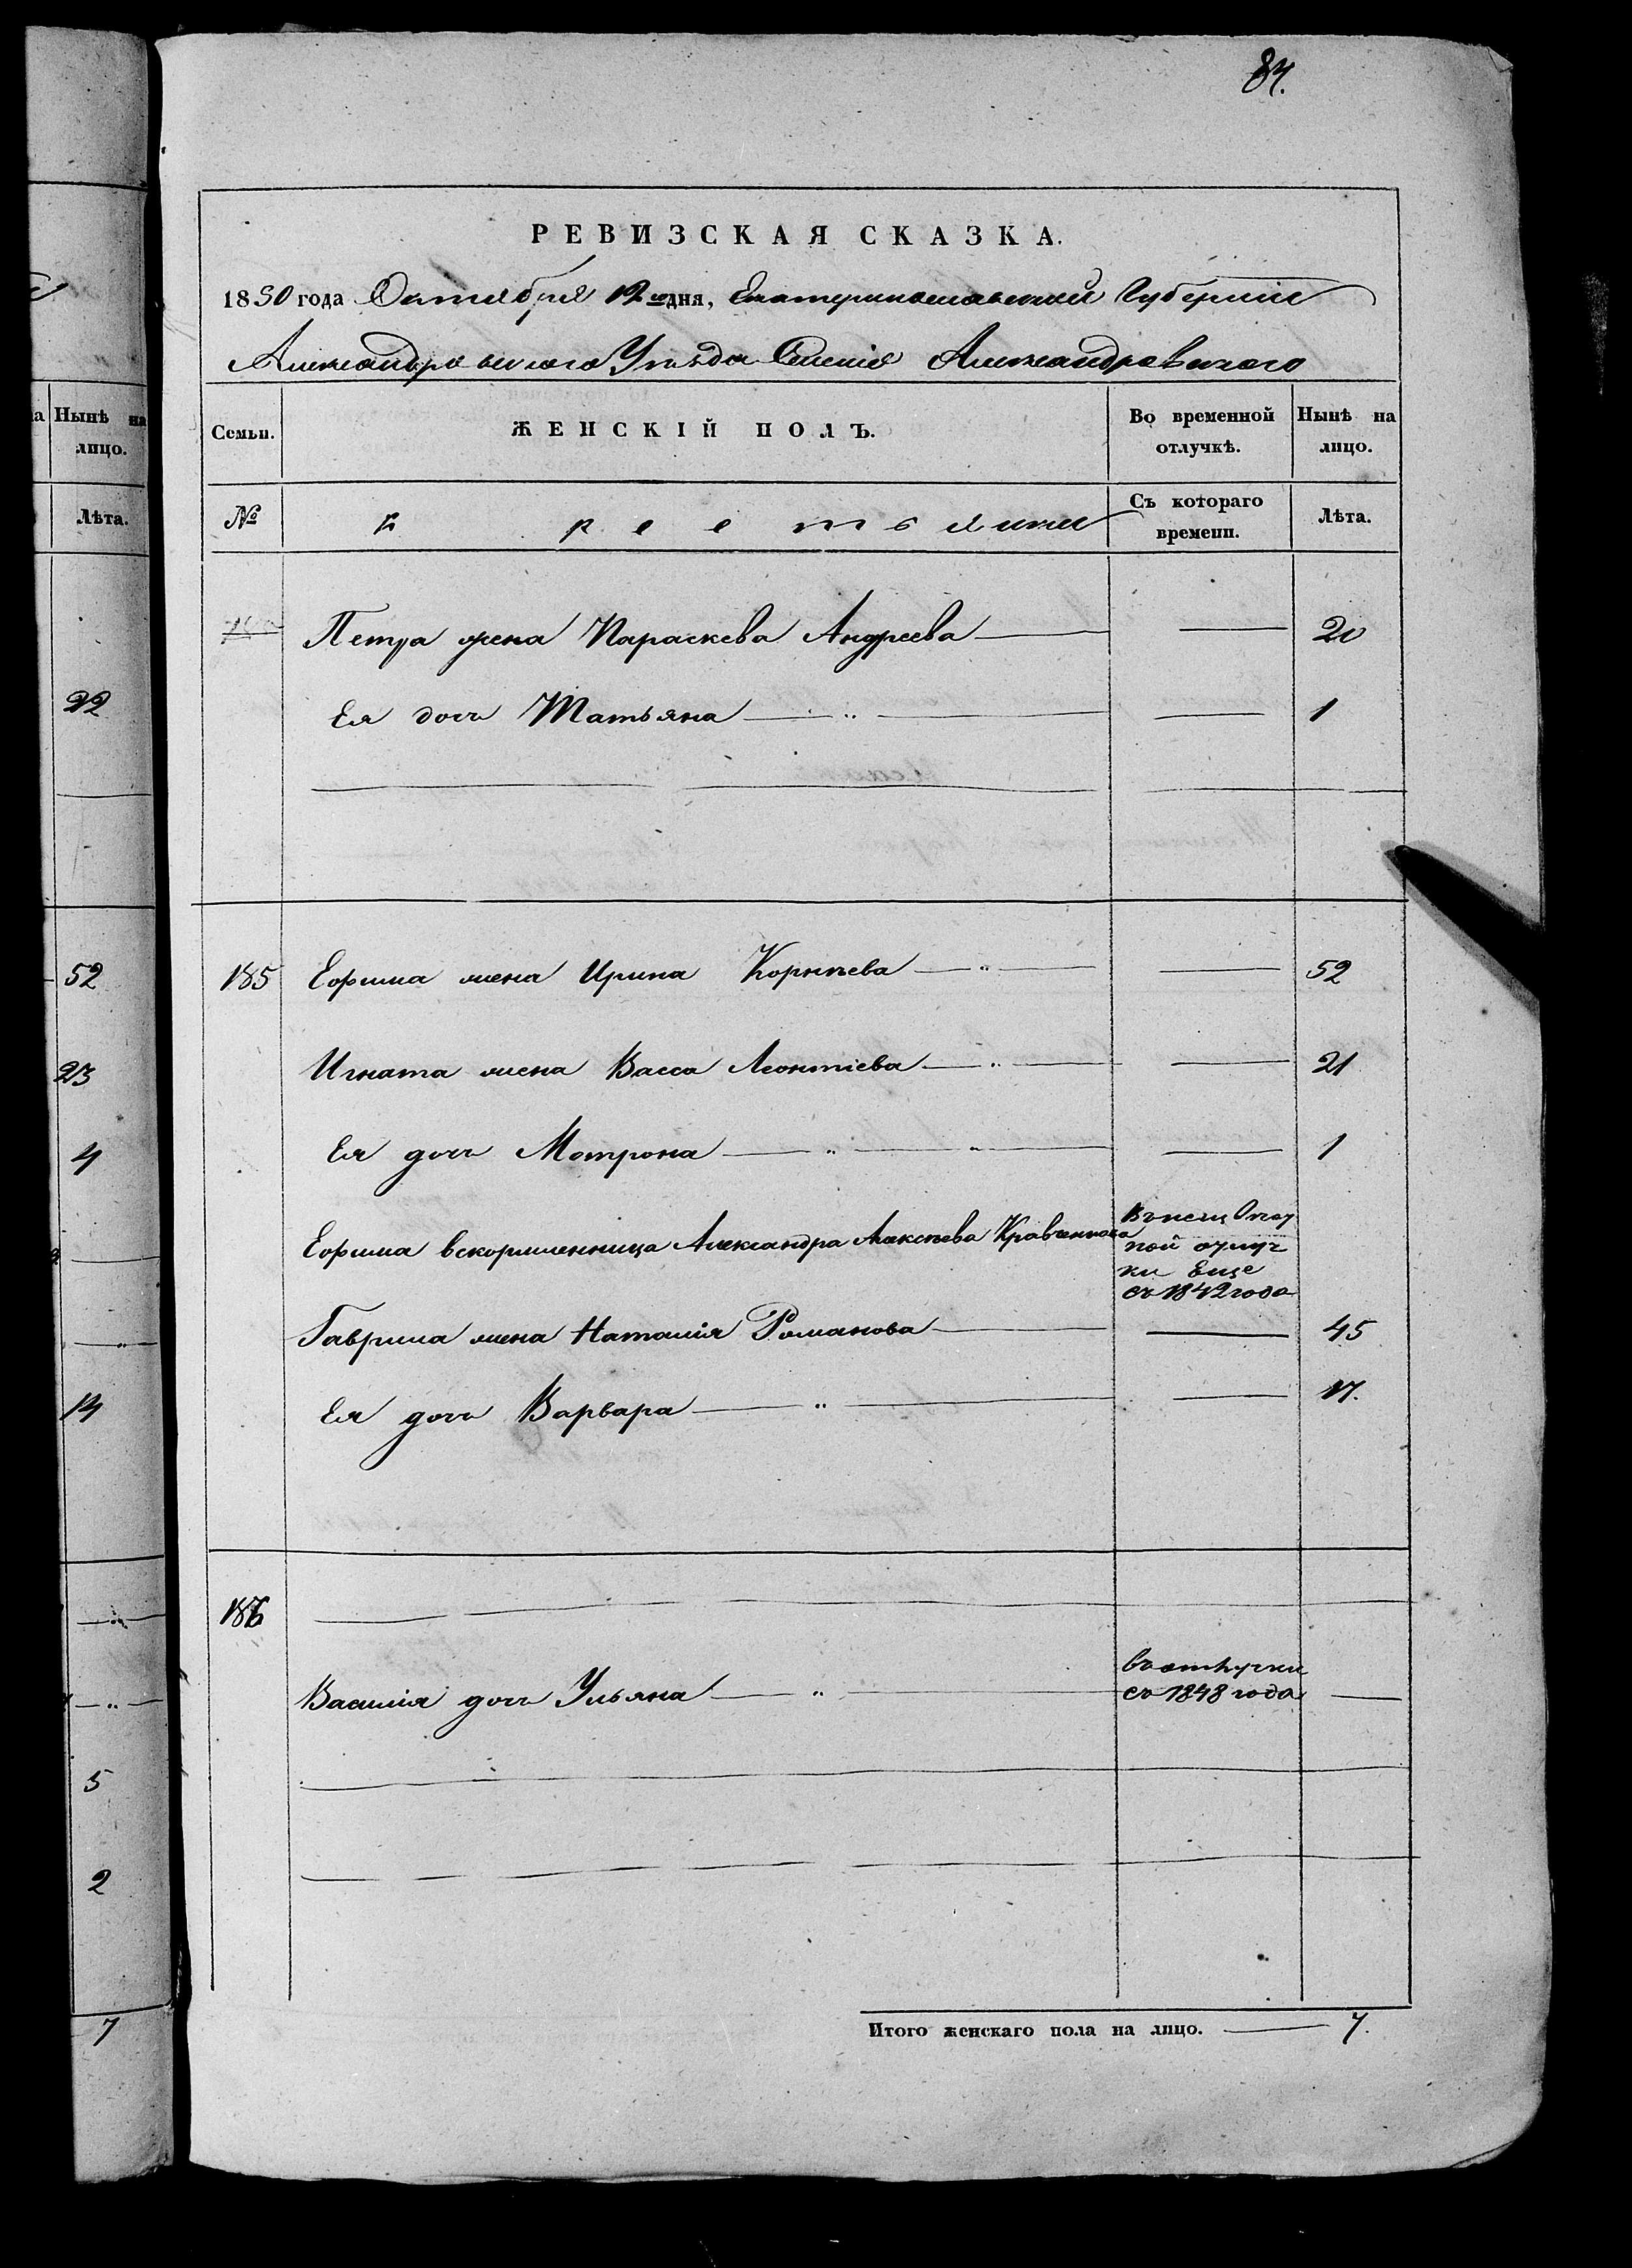 84.
РЕВИЗСКАЯ СКАЗКА.
1850 года Октября 12го дня, Екатеринославской Губерніи
Александровского Уезда Селенія Александровского
на Нынѣ на
лицо.
Лѣта.
22
52
23
4
14
5
2
7
Семьи. ЖЕНСКІЙ ПОЛЪ. Во временной отлучкѣ. Нынѣ на лицо.
№ крестьянки Съ котораго времени. Лѣта.
Петра жена Параскева Андреева 20
Ея дочь Татьяна 1
185 Ефима жена Ирина Корнѣева 52
Игната жена Васса Леонтіева 21
Ея дочь Мотрона 1
Ефима вскормленница Александра Алексѣева
еще
съ 1842 года
Гаврила жена Наталія Романова 45
Ея дочь Варвара 17.
186
въ отлучки
Василія дочь Ульяна съ 1848 года
Итого женскаго пола на лицо. 7.